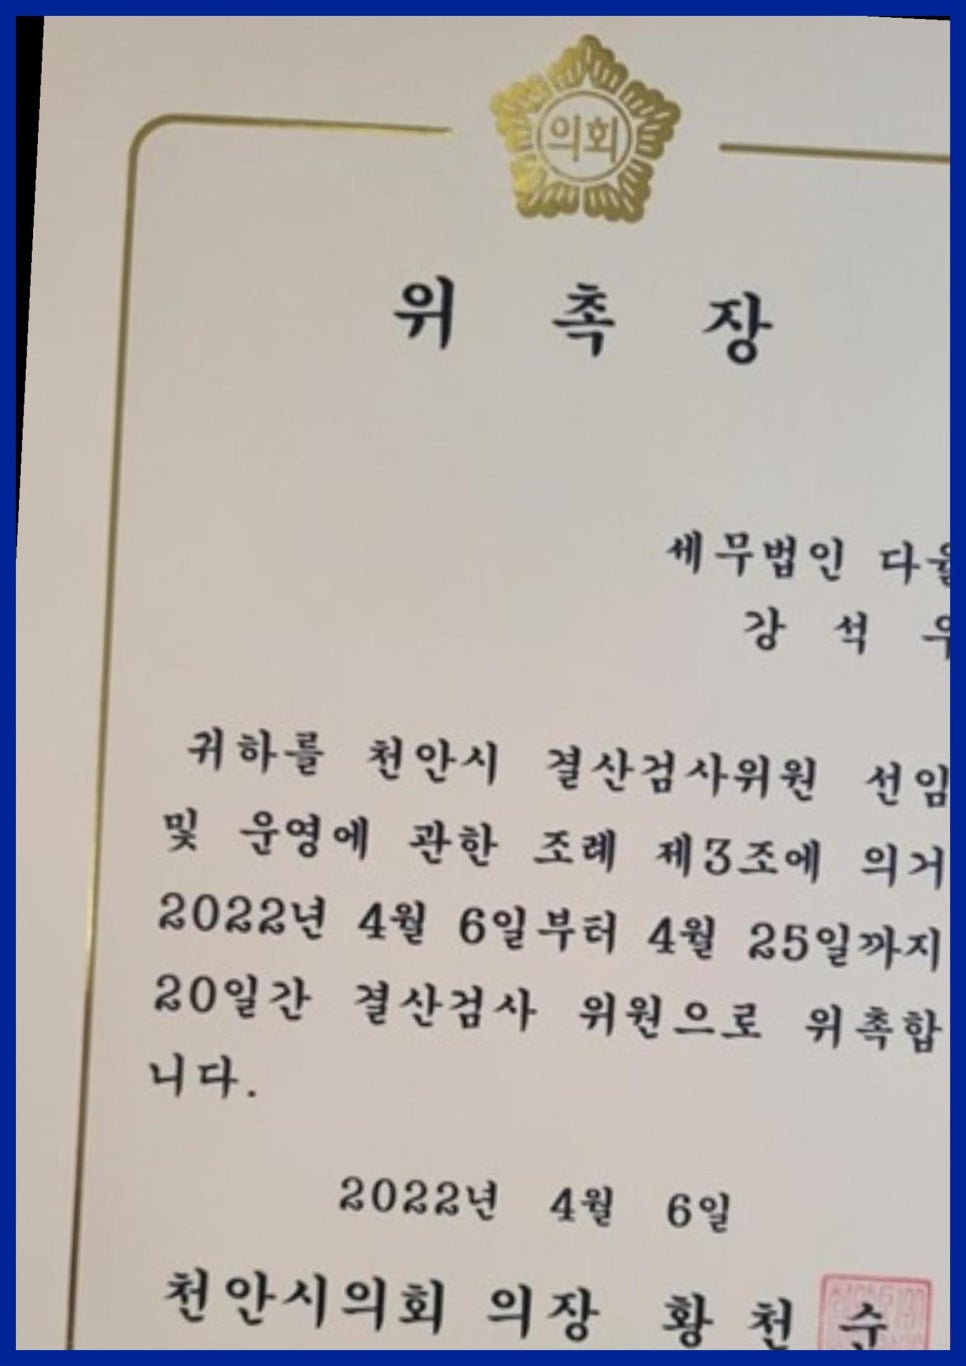 의회
위 촉 장
세무법인
강 석
귀하를 천안시 결산검사위원 선임
및 운영에 관한 조례 제3조에 의거
2022년 4월 6일부터 4월 25일까지
20일간 결산검사 위원으로 위촉합
니다.
2022년 4월 6일
천안시의회 의장 황 천 순